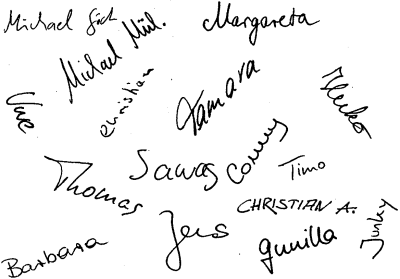 Michael
Margareta
Michael
Christian
Tamara
Uwe
Heiko
Sawas
Conny
Timo
Thomas
CHRISTIAN A.
Jens
Gunilla
Barbara